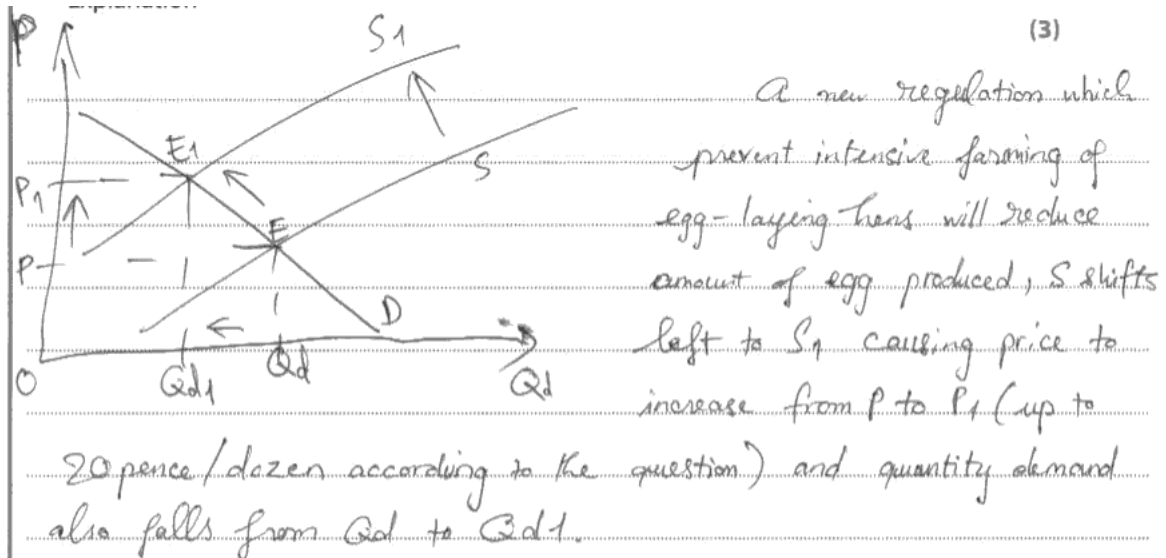 Explanation
(3)
P
S1
A new regulation which
prevent intensive farming of
egg-laying hens will reduce
amount of egg produced, S shifts
left to S1 causing price to
increase from P to P1 (up to
20 pence/dozen according to the question) and quantity demand
also falls from Qd to Qd1.
E1
S
P1
E
P
D
O
Qd1
Qd
Qd